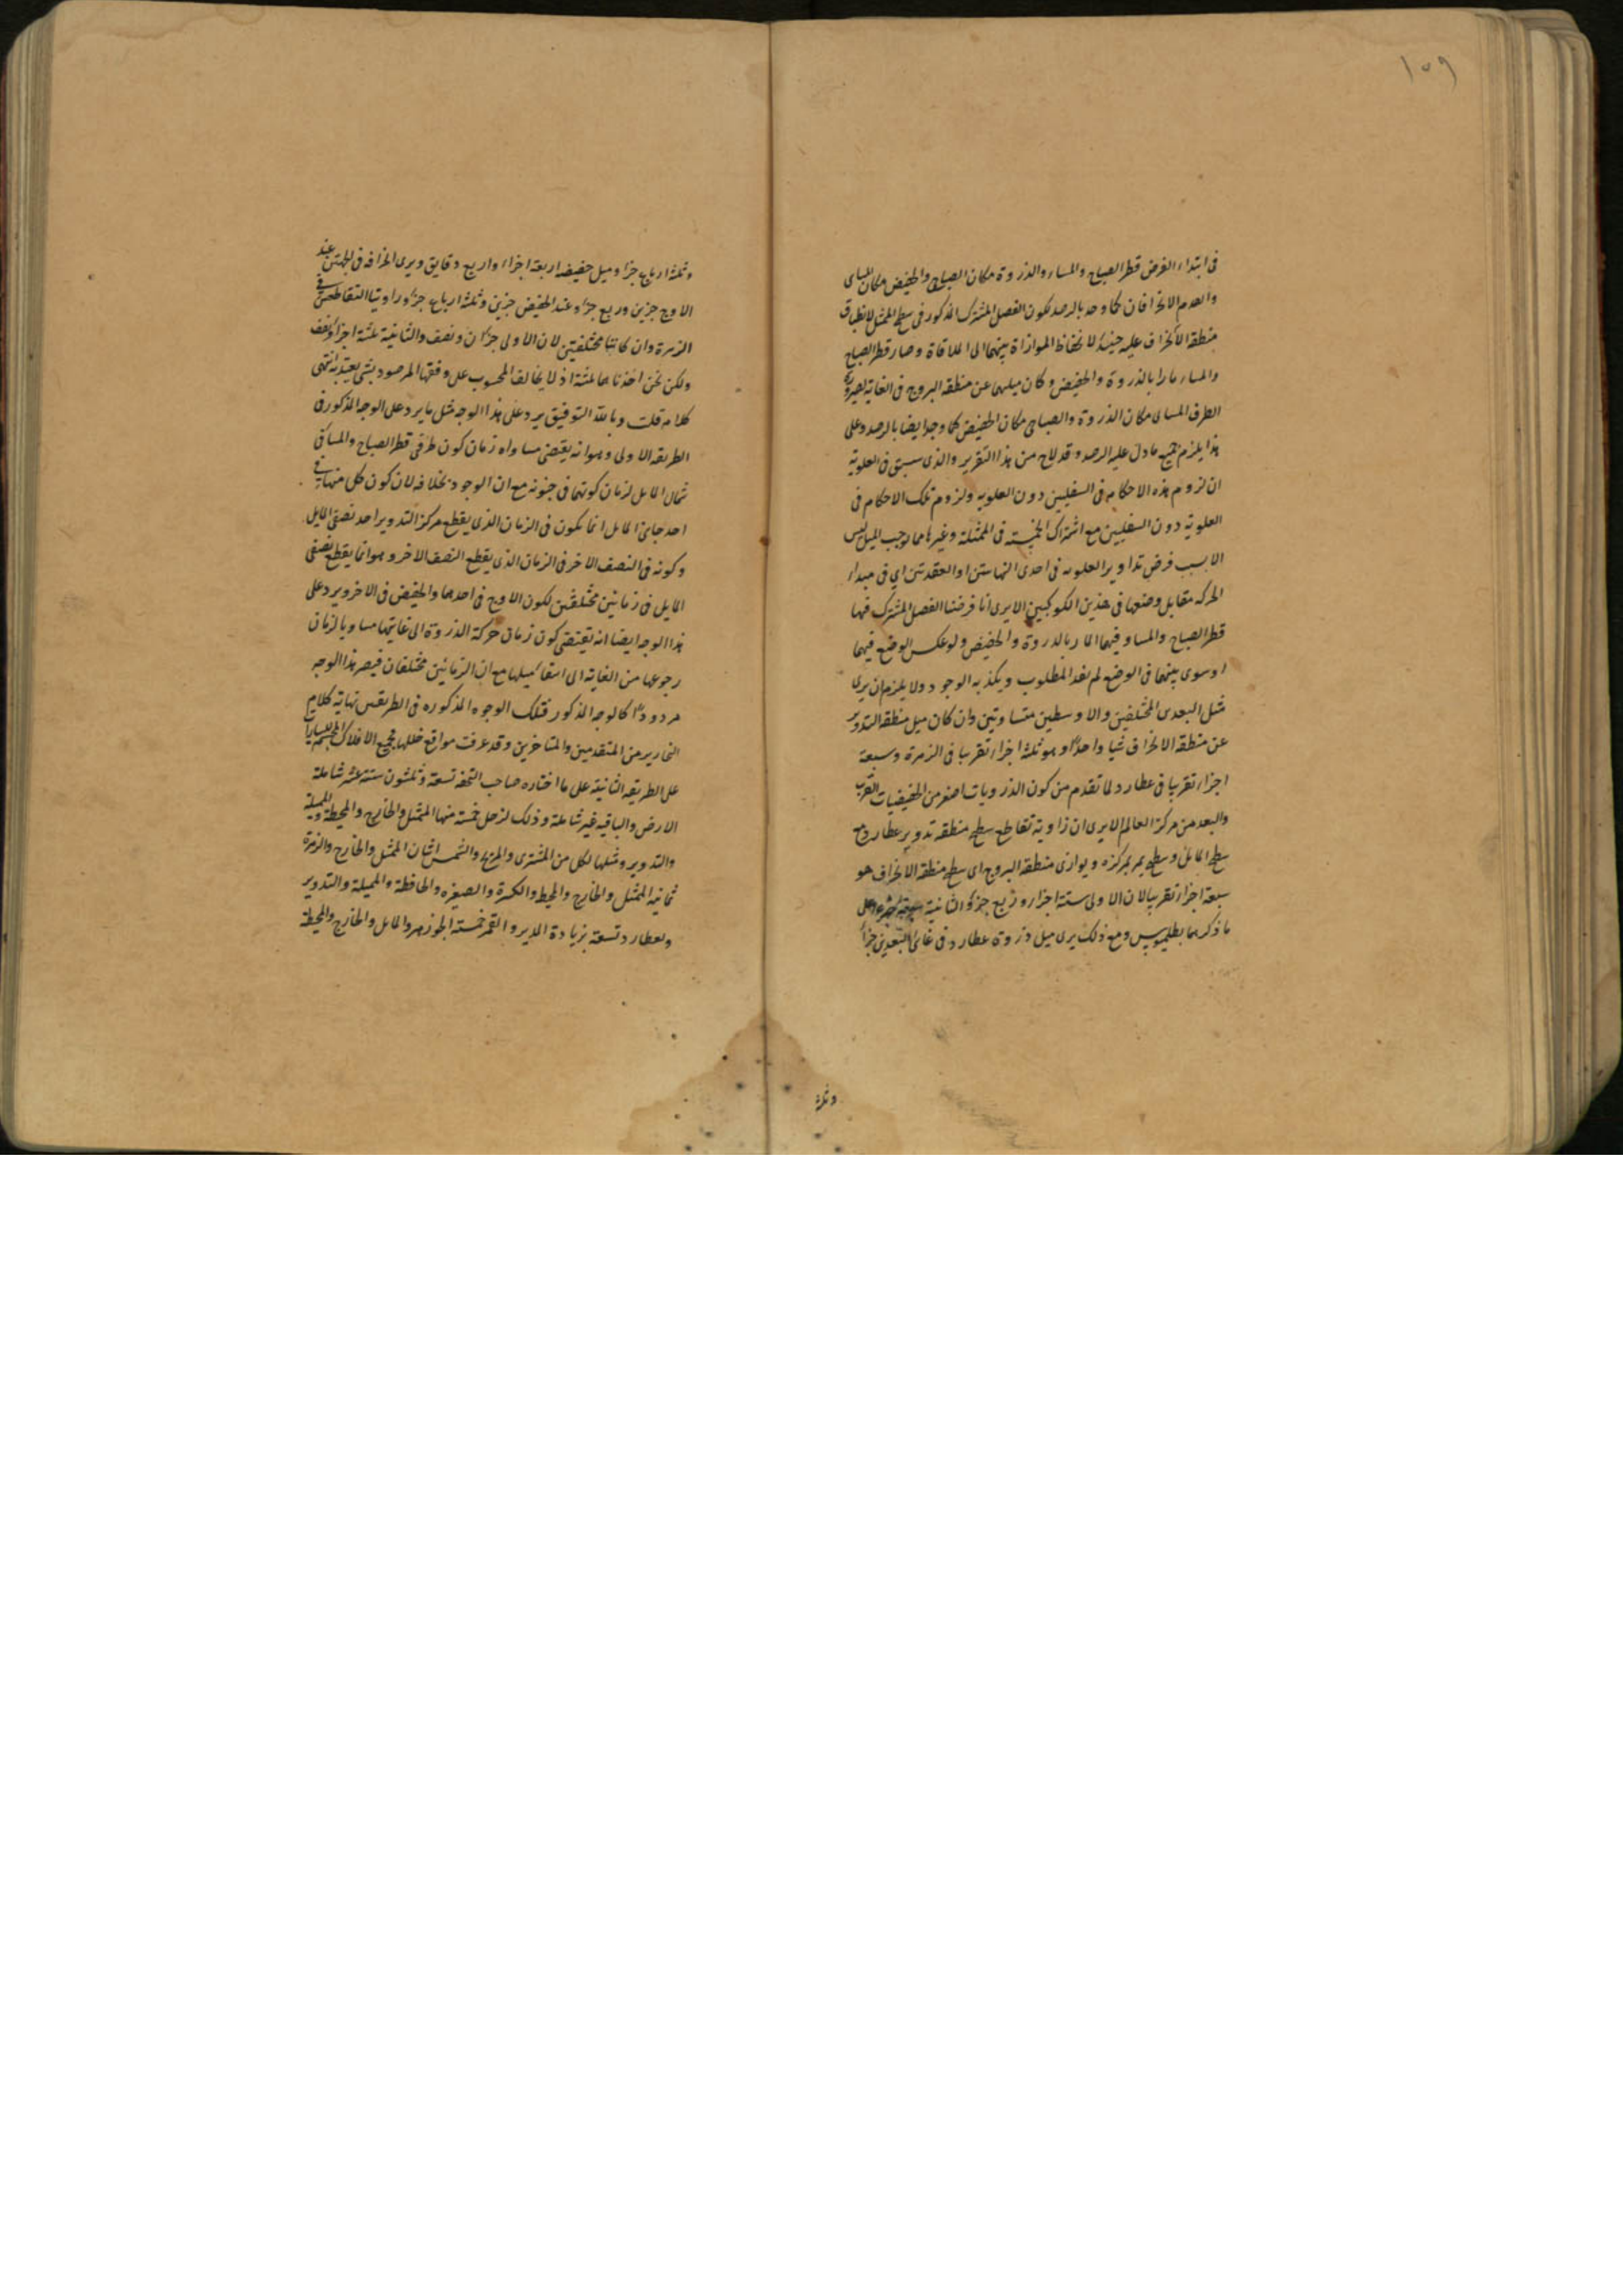 ١٥٩
فى ابتداء الفرض قطر الصباح والمساء والذروة مكان الصباحى والحضيض مكان المساى
وانعدم الانحرافان كما وجد بالرصد لكون الفصل المشترك المذكور فى سطح الممثل لانطباق
منطقة الانحراف عليه حينئذ لانحفاظ الموازاة بينهما الى الملاقاة وصار قطر الصباح
والمساء مارا بالذروة والحضيض وكان ميلهما عن منطقة البروج فى الغاية لصيرورة
الطرف المساى مكان الذروة والصباحى مكان الحضيض كما وجد ايضا بالرصد وعلى
هذا يلزم جميع ما دل عليه الرصد وقد لاح من هذا التقرير والذى سبق فى العلوية
ان لزوم هذه الاحكام فى السفليين دون العلويه ولزوم تلك الاحكام فى
العلوية دون السفليين مع اشتراك الخمسة فى الممثلة وغيرها مما يوجب الميل ليس
الا بسبب فرض تداوير العلويه فى احدى النهايتين او العقدتين اى فى مبداء
الحركه مقابل وضعها فى هذين الكوكبين الا يرى انا فرضنا الفصل المشترك فيها
قطر الصباح والمساء وفيهما المار بالذروة والحضيض ولو عكس الوضع فيهما
او سوى بينهما فى الوضع لم نفد المطلوب ويكذبه الوجود ولا يلزم ان يرى
مثل البعدى المختلفين والاوسطين متساوتين وان كان ميل منطقة التدوير
عن منطقة الانحراف شيا واحدًا وهو ثلثة اجزاء تقريبا فى الزهرة وسبعة
اجزاء تقريبا فى عطارد لما تقدم من كون الذرويات اصغر من الحضيضيات للقرب
والبعد من مركز العالم الا يرى ان زاوية تقاطع سطح منطقة تدوير عطارد مع
سطح المايل وسطح يمر بمركزه ويوازى منطقة البروج اى سطح منطقة الانحراف هو
سبعة اجزاء تقريبا لان الاولى ستة اجزاء وربع جزء والثانية سبعة اجزاء على
ما ذكرهما بطلميوس ومع ذلك يرى ميل ذروة عطارد فى غايتى البعدين جزأ
وثلثة
وثلثة ارباع جزء وميل حضيضه اربعة اجزاء واربع دقايق ويرى انحرافه فى الجهتين عند
الاوج جزين وربع جزء وعند الحضيض جزين وثلثة ارباع جزء وزاويتا التقاطعين فى
الزهرة وان كانتا مختلفتين لان الاولى جزان ونصف والثانية ثلثة اجزاء ونصف
ولكن نحن اخذناهما ثلثة اذ لا يخالف المحسوب على وفقها المرصود بشى يعتد به انتهى
كلامه قلت وبالله التوفيق يرد على هذا الوجه مثل ما يرد على الوجه المذكور فى
الطريقه الاولى وهو انه يقتضى مساواه زمان كون طرفى قطر الصباح والمسا فى
شمال المايل لزمان كونهما فى جنوبه مع ان الوجود بخلافه لان كون كل منهما فى
احد جانبى المايل انما يكون فى الزمان الذى يقطع مركز التدوير احد نصفى المايل
وكونه فى النصف الاخر فى الزمان الذى يقطع النصف الاخر وهو انما يقطع نصفى
المايل فى زمانين مختلفين لكون الاوج فى احدهما والحضيض فى الاخر ويرد على
هذا الوجه ايضا انه يقتضى كون زمان حركة الذروة الى غايتها مساويا لزمان
رجوعها من الغاية الى انتفا ميلها مع ان الزمانين مختلفان فيصير هذا الوجه
مردودًا كالوجه المذكور فتلك الوجوه المذكوره فى الطريقين نهاية كلام
النحارير من المتقدمين والمتاخرين وقد عرفت مواقع خللها فجميع الافلاك المجسمة للسيارات
على الطريقه الثانية على ما اختاره صاحب التحفه تسعة وثلثون ستة عشر شاملة
الارض والباقيه غير شاملة وذلك لزحل خمسة منها الممثل والخارج والمحيطة والمميلة
والتدوير ومثلها لكل من المشترى والمريخ والشمس اثنان الممثل والخارج والزهرة
ثمانيه الممثل والخارج والمحيط والكبيرة والصغيره والحافظة والمميلة والتدوير
ولعطارد تسعة بزيادة المدير والقمر خمسة الجوزهر والمايل والخارج والمحيطة